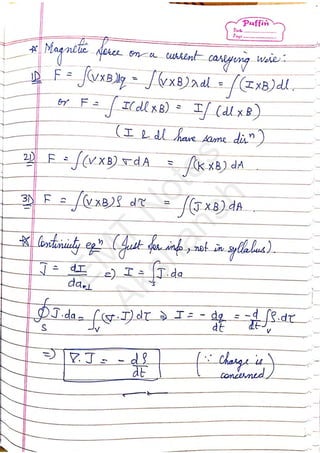 Puffin
Date
Page
* Magnetic force on a current carrying wire:
1D F = ∫(V×B)dq = ∫(V×B)λdl = ∫(I×B)dl.
or F = ∫I(dl×B) = I∫(dl×B)
(I & dl have same dirⁿ)
2D F = ∫(V×B) σdA = ∫(K×B) dA
3D F = ∫(V×B)ρ dτ = ∫(J×B) dA.
* Continuity eqⁿ (Just for info, not in syllabus).
J = dI/da⊥ => I = ∫J.da
∮J.da = ∫(∇.J)dτ => I = -dq/dt = -d/dt ∫ρ.dτ
S V V
=> ∇.J = -dρ/dt (∵ Charge is
concerned)